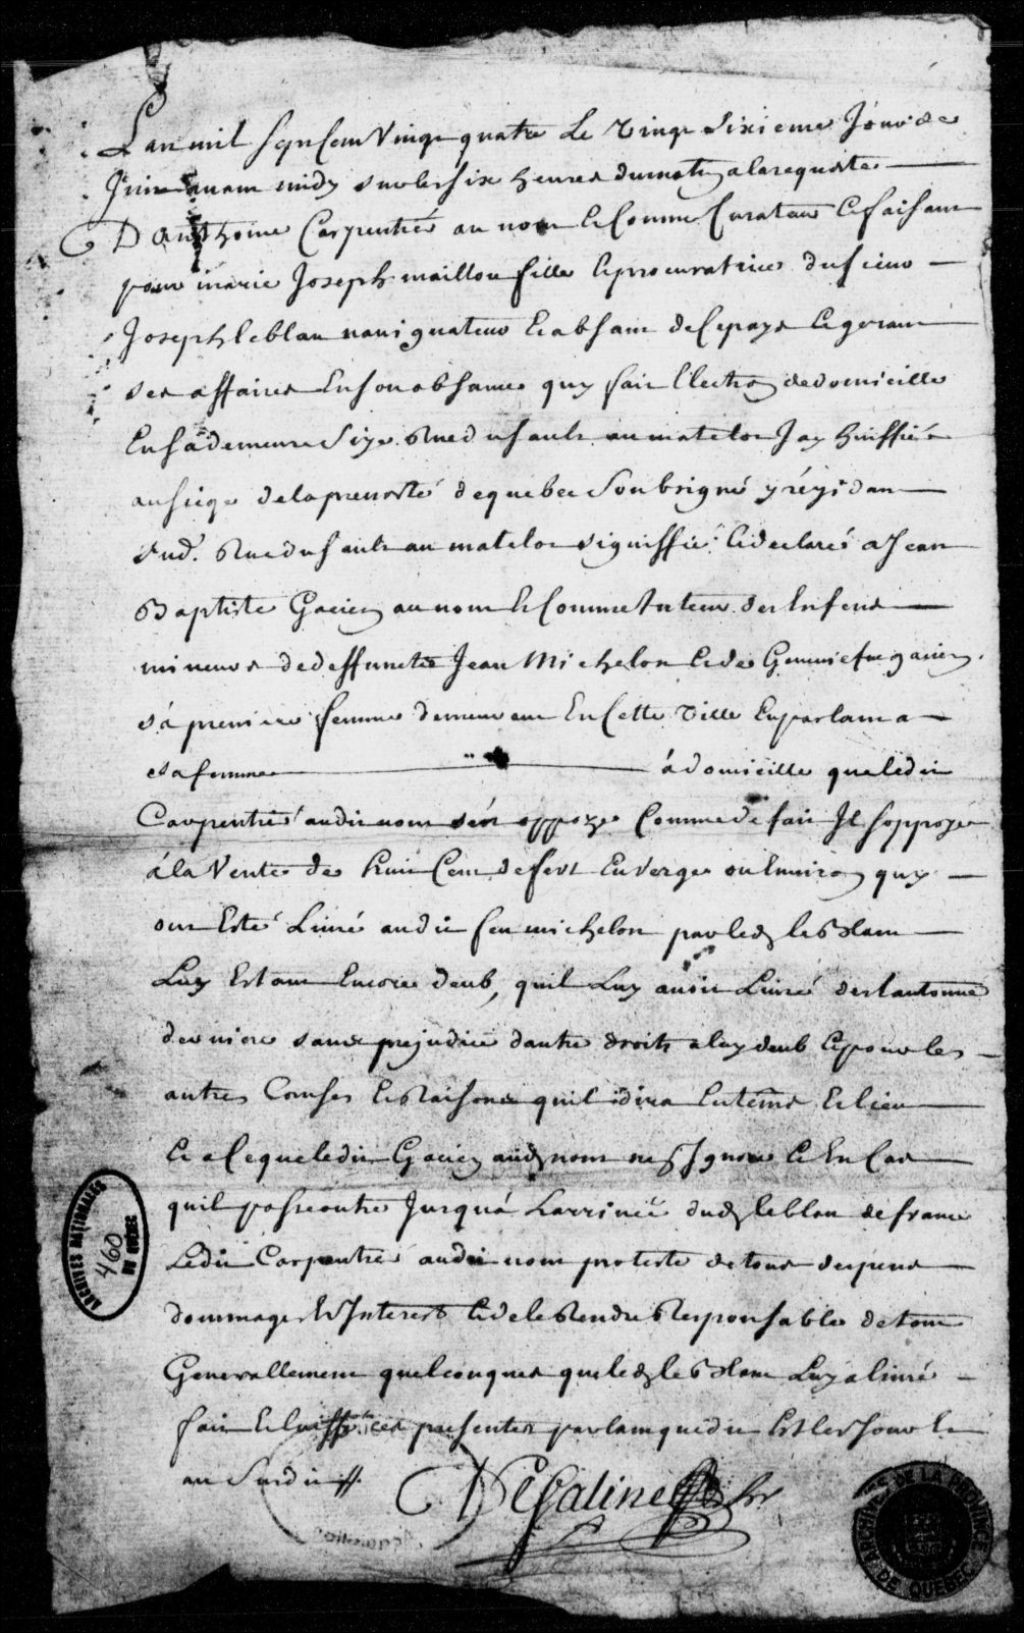 Lan mil sept Cent Vingt quatre Le Vingt Sixieme Jour de
Juin avant midy sur les six heures du matin a la requeste
D'anthoine Carpentié au nom & Comme Curateur & faisant
pour marie Joseph maillou fille & procuratrice du sieur
Joseph leblan navigateur & absant de Ce pays & gerant
ses affaires En son absance quy fait Election de domicille
En sa demeure Size Rue du sault au matelot Jay huissié
au siege de la prevosté de quebec Soubsigné y rézidant
sud. Rue du sault au matelot signiffié & declaré a Jean
Baptiste Gatien au nom & Comme tuteur des Enfens
mineurs de deffuncts Jean Michelon & de Genneviefve gatien
sa premiere femme demeurant En Cette Ville En parlant a
sa femme a domicille que ledit
Carpentié audit nom sen oppoze Comme de fait Il soppoze
a la Vente de huit Cent de fert En verge ou Environ quy
ont Esté Livré audit feu michelon par led. le Blanc
Luy Estant Encore deub, quil Luy avoit Livré des lautonne
derniere sans prejudice dautre droits a luy deub & pour les
autres Causes & Raisons quil dira En tems & lieu
& a Ce que ledit Gatien aud. nom nen Ignore & En Cas
quil passe outre Jusqua Larrivée dud. leblan de france
Ledit Carpentié audit nom proteste de tous despens
dommages & Interest & de le Rendre Responsable de tout
Generallement quelconques que led. le Blanc Luy a livré
fait & laissé ces presentes parlant que dit Est les Jour &
an Susdit
DeGalinee hr
ARCHIVES NATIONALES
460
DU QUÉBEC
ARCHIVES DE LA PROVINCE DE QUEBEC